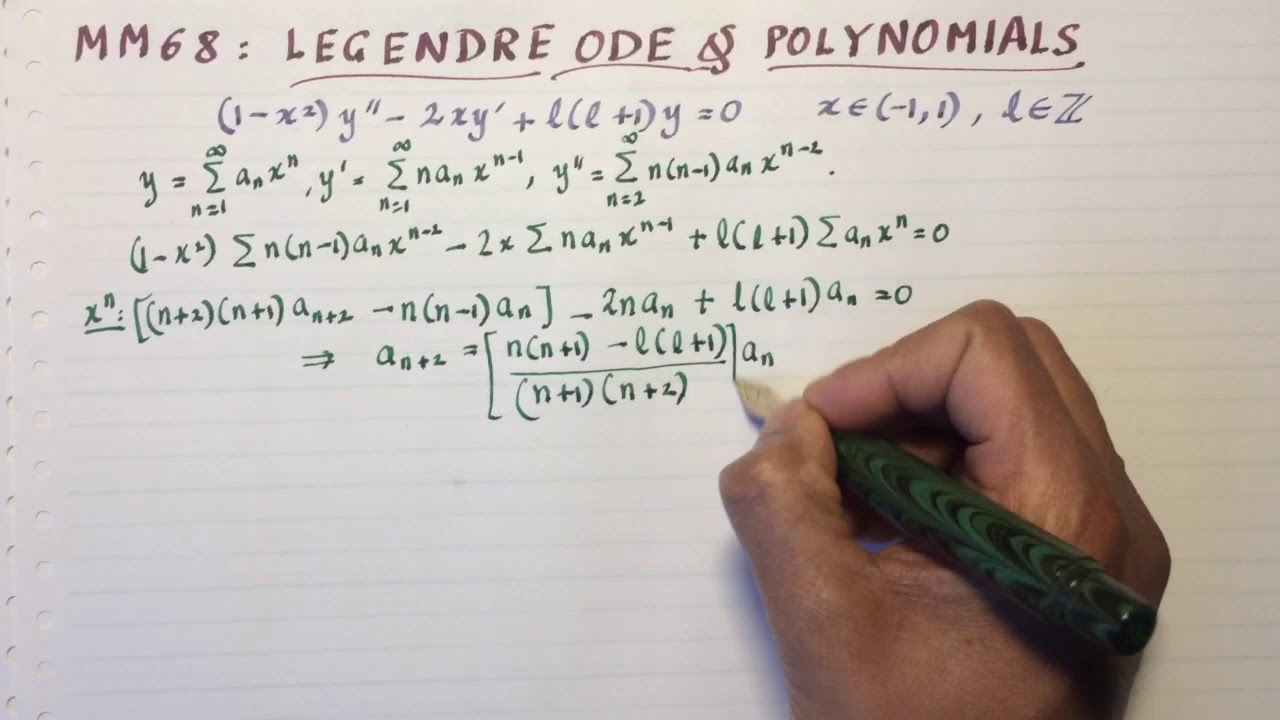 MM68: LEGENDRE ODE & POLYNOMIALS
(1-x²)y" - 2xy' + l(l+1)y = 0 x∈(-1,1), l∈ℤ
y = ∑_{n=1}^{∞} aₙxⁿ, y' = ∑_{n=1}^{∞} naₙxⁿ⁻¹, y" = ∑_{n=2}^{∞} n(n-1)aₙxⁿ⁻².
(1-x²) ∑n(n-1)aₙxⁿ⁻² - 2x ∑naₙxⁿ⁻¹ + l(l+1) ∑aₙxⁿ = 0
xⁿ: [(n+2)(n+1)aₙ₊₂ - n(n-1)aₙ] - 2naₙ + l(l+1)aₙ = 0
⇒ aₙ₊₂ = [(n(n+1) - l(l+1))/((n+1)(n+2))]aₙ